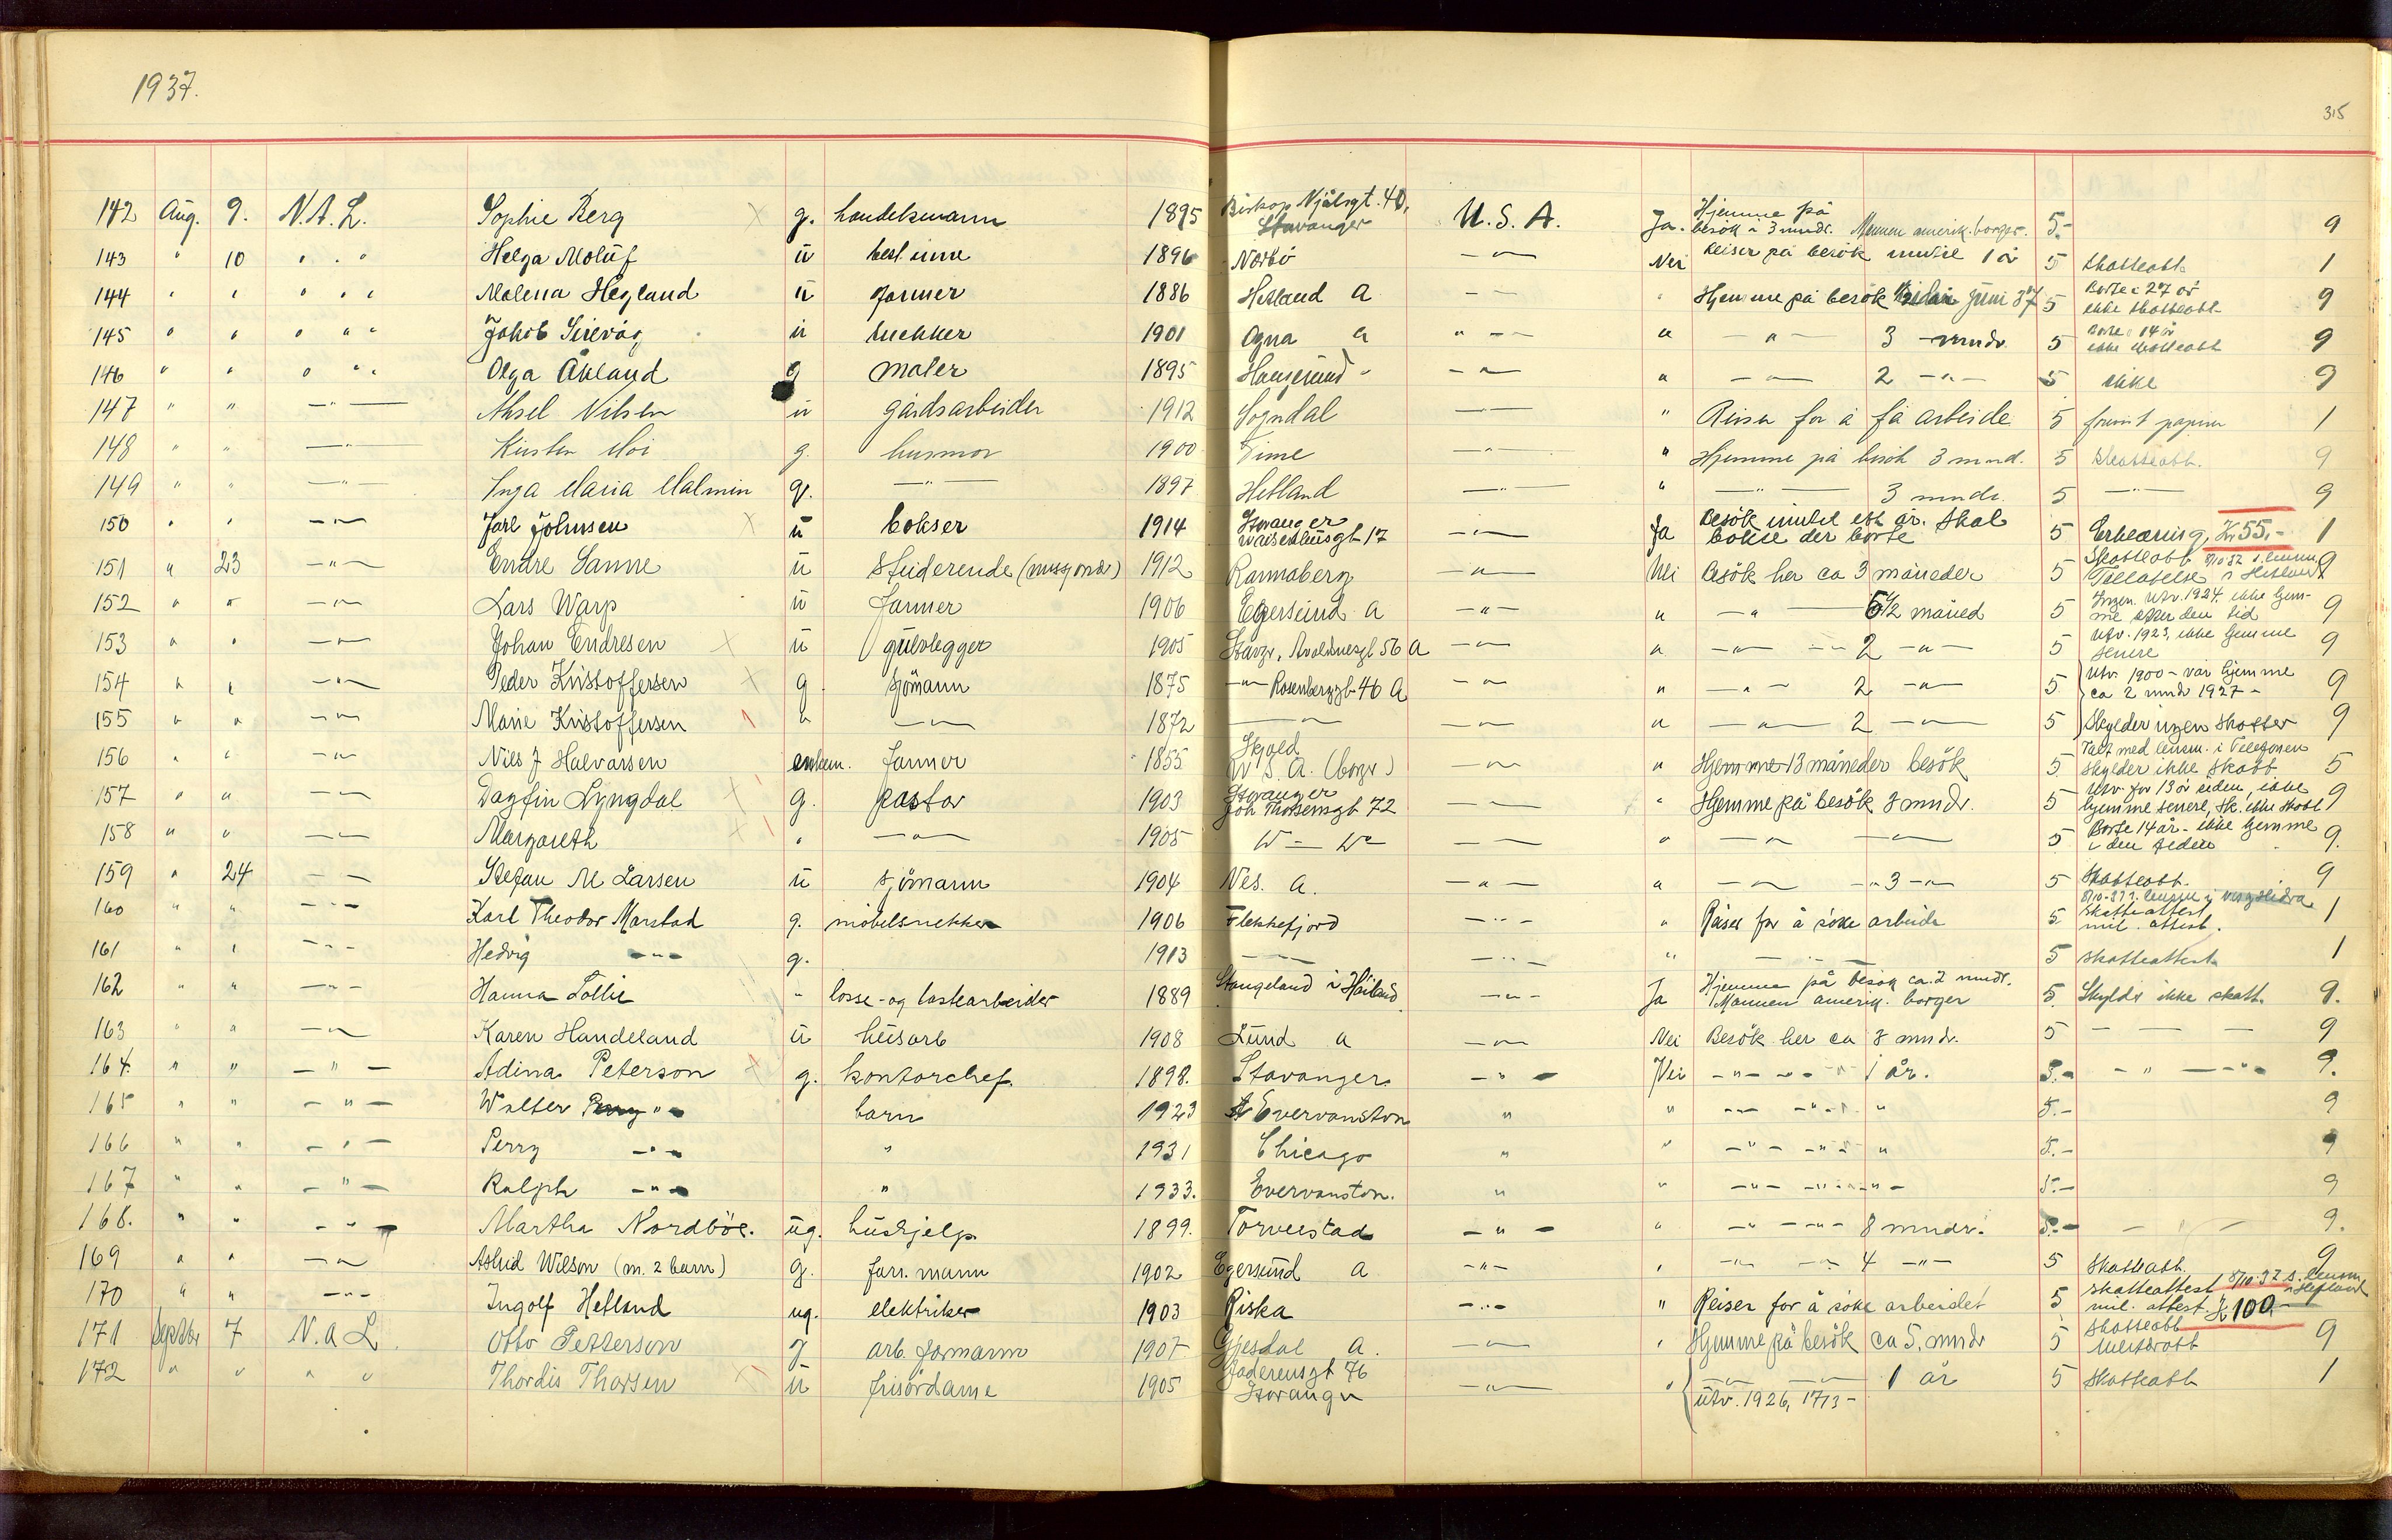 1937.
315
142 Aug. 9. N.A.L. Sophie Berg g. handelsmann 1895 Biskop Njålsgt. 40, Stavanger U.S.A. Ja. Hjemme på besök i 3 mndr. Mannen amerik. borger. 5.- 9
143 " 10 " " " Helga Moluf ü best. inne 1896 Nærbö —"— Nei Reiser på besök inntil 1 år 5 skatteatt. 1
144 " " " " " Malena Hegland ü farmer 1886 Hetland A —"— " Hjemme på besök siden juni 37 5 Borte i 27 år ikke skatteatt. 9
145 " " " " " Jakob Sirevåg ü snekker 1901 Ogna a " —"— " —"— 3 mndr. 5 Borte i 14 år ikke skatteatt 9
146 " " " " " Olga Åkland g maler 1895 Haugesund " —"— " —"— 2 —"— 5 ikke 9
147 " " —"— Aksel Nilsen ü gårdsarbeider 1912 Sogndal —"— " Reiser for å få arbeide 5 fremv. papirer 1
148 " " —"— Kirsten Moi g. husmor 1900 Time —"— " Hjemme på besök 3 mnd. 5 Skatteatt. 9
149 " " —"— Inga Maria Malmin g. —"— 1897 Hetland —"— " —"— 3 mndr. 5 —"— 9
150 " " —"— Jarl Johnsen ü bokser 1914 Stavanger Waisenhusgt 17 —"— Ja Besök inntil ett år. Skal bokse der borte 5 Erklæring, Kr 55.- 1
151 " 23 —"— Endre Sanne ü Studerende (misjonær) 1912 Rannaberg —"— Nei Besök her ca 3 måneder 5 Skatteatt 8/10-37 s. lensm. Tillatelse i Hetland 9
152 " " —"— Lars Warp ü Farmer 1906 Egersund a —"— " —"— 5 1/2 måned 5 Ingen. Utv. 1924. ikke hjemme etter den tid 9
153 " " —"— Johan Endresen ü gulvlegger 1905 Stavgr, Avaldsnesgt 56 A —"— " —"— —"— 2 —"— 5 Utv. 1923, ikke hjemme senere 9
154 " " —"— Peder Kristoffersen g sjömann 1875 —"— Rosenberggt 46 A —"— " —"— 2 —"— 5 Utv. 1900 - var hjemme ca 2 mndr 1927 - 9
155 " " —"— Marie Kristoffersen " —"— 1872 —"— —"— " —"— 2 —"— 5 Skylder ingen skatter 9
156 " " —"— Nils J Halvarsen enkem. Farmer 1855 Skjold U.S.A. (borgr) —"— " Hjemme 13 måneder besök 5 Talt med lensm. i Telefonen skylder ikke skatt 5
157 " " —"— Dagfin Lyngdal g. pastor 1903 Stavanger Joh Thorsensgt 72 —"— " Hjemme på besök 3 mndr. 5 Utv. for 13 år siden, ikke hjemme senere, sk. ikke skatt 9
158 " " —"— Margareth " —"— 1905 —"— —"— " —"— —"— 5 Borte 14 år - ikke hjemme i den tiden 9.
159 " 24 —"— Stefan M Larsen ü sjömann 1904 Nes. a. —"— " —"— —"3—"— 5 Skatteatt. 9
160 " " —"— Karl Theodor Marstad g. möbelsnekker 1906 Flekkefjord —"— " Reiser for å söke arbeide 5. 8/10-37 s. lensm. skatteattest mil. attest. 1
161 " " —"— Hedvig —"— g. 1913 —"— —"— " —"— 5 skatteattest 1
162 " " —"— Hanna Tollie " losse- og lastearbeider 1889 Stangeland i Håland —"— Ja Hjemme på besök ca. 2 mndr. Mannen amerik. borger 5. Skylder ikke skatt. 9.
163 " " —"— Karen Handeland ü husarb 1908 Lund a —"— Nei Besök her ca 3 mndr. 5 — — — 9
164. " " —"— Adina Peterson g. kontorchef. 1898. Stavanger —"— Nei —"— —"— 1 år. 5.- —"— —"— 9.
165 " " —"— Walter —"— barn 1923 Evervanston " " —"— —"— " 5.- 9
166 " " —"— Perry —"— " 1931 Chicago " " —"— —"— " 5.- 9
167 " " —"— Ralph —"— " 1933. Evervanston. " " —"— —"— " 5.- 9
168. " " —"— Martha Nordböe. ug. hushjelp 1899. Torvestad —"— " —"— —"— 8 mndr. 5.- — — 9.
169 " " —"— Astrid Wilson (m. 2 barn) g. forr. mann 1902 Egersund a —"— " —"— —"— 4 —"— 5 Skatteatt. 9
170 " " —"— Ingolf Hetland ug. elektriker 1903 Riska —"— " Reiser for å söke arbeidet 5 skatteattest 8/10-37 s. lensm. i Hetland mil. attest. Kr 100.-
171 Septbr 7 N.a.L. Otto Petterson g arb. formann 1907 Gjesdal a. —"— " Hjemme på besök ca 5. mndr 5 Skatteatt 9
172 " " " " Thordis Thorsen ü frisördame 1905 Jaderensgt 76 Stavanger —"— " —"— —"— 1 år utv. 1926, 17/3 - 5 Skatteatt 1